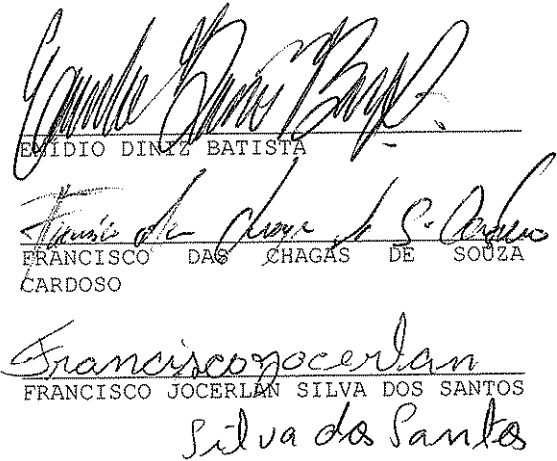 Emídio Diniz Batista
EMÍDIO DINIZ BATISTA
Francisco das Chagas de S. Cardoso
FRANCISCO DAS CHAGAS DE SOUZA
CARDOSO
Francisco Jocerlan
FRANCISCO JOCERLAN SILVA DOS SANTOS
Silva dos Santos